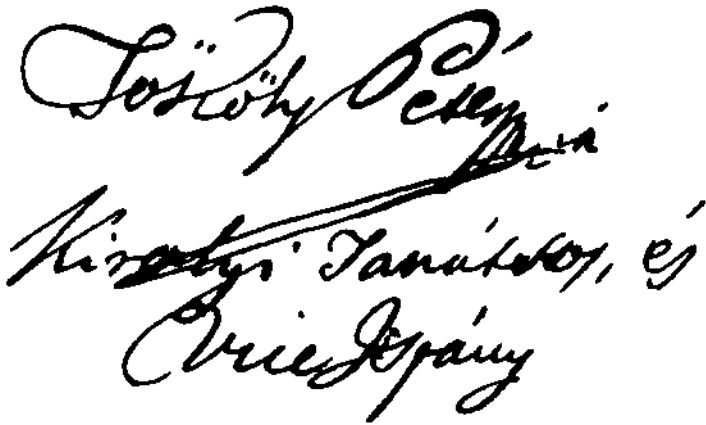 Tököly Péter
Kiralyi Tanátsos, és
Vice Ispány